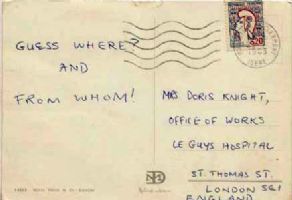 GUESS WHERE?
AND
FROM WHOM!
MRS DORIS KNIGHT,
OFFICE OF WORKS
LE GUYS HOSPITAL
ST. THOMAS ST.
LONDON SE1
ENGLAND